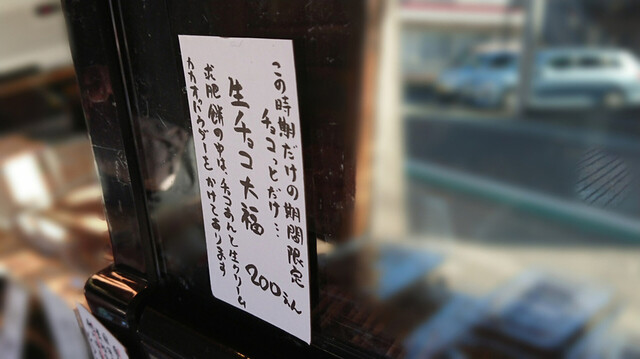 この時期だけの期間限定
チョコっとだけ…
生チョコ大福
200えん
求肥餅の中は、チョコあんと生クリーム
カカオパウダーをかけてあります